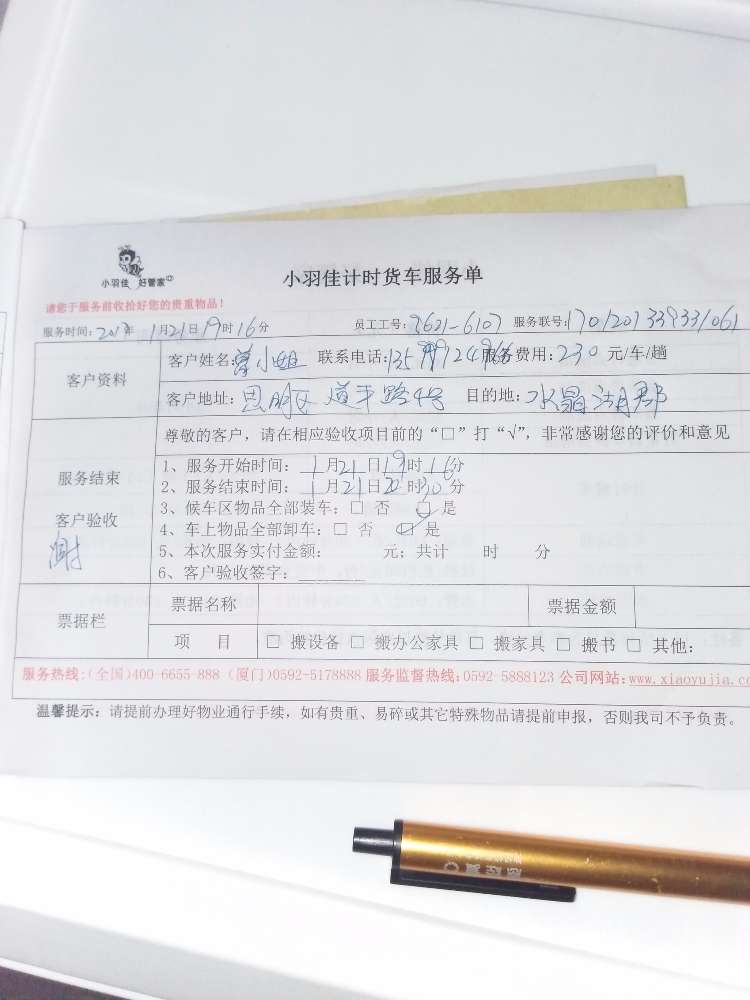 小羽佳 好管家
小羽佳计时货车服务单
请您于服务前收拾好您的贵重物品！
服务时间：2017年 1月21日19时16分 员工工号：3621-6107 服务联号：170120133933/061
客户资料
客户姓名：曾小姐 联系电话： 服务费用：230元/车/趟
客户地址：思明区 道平路4号 目的地：水晶湖郡
尊敬的客户，请在相应验收项目前的“□”打“√”，非常感谢您的评价和意见
服务结束
客户验收
谢
1、服务开始时间：1月21日19时16分
2、服务结束时间：1月21日20时30分
3、候车区物品全部装车：□ 否 ☑ 是
4、车上物品全部卸车：□ 否 ☑ 是
5、本次服务实付金额： 元；共计 时 分
6、客户验收签字：
票据栏
票据名称 票据金额
项 目 □ 搬设备 □ 搬办公家具 □ 搬家具 □ 搬书 □ 其他：
服务热线：(全国)400-6655-888 (厦门)0592-5178888 服务监督热线：0592-5888123 公司网站：www.xiaoyujia.co
温馨提示：请提前办理好物业通行手续，如有贵重、易碎或其它特殊物品请提前申报，否则我司不予负责。